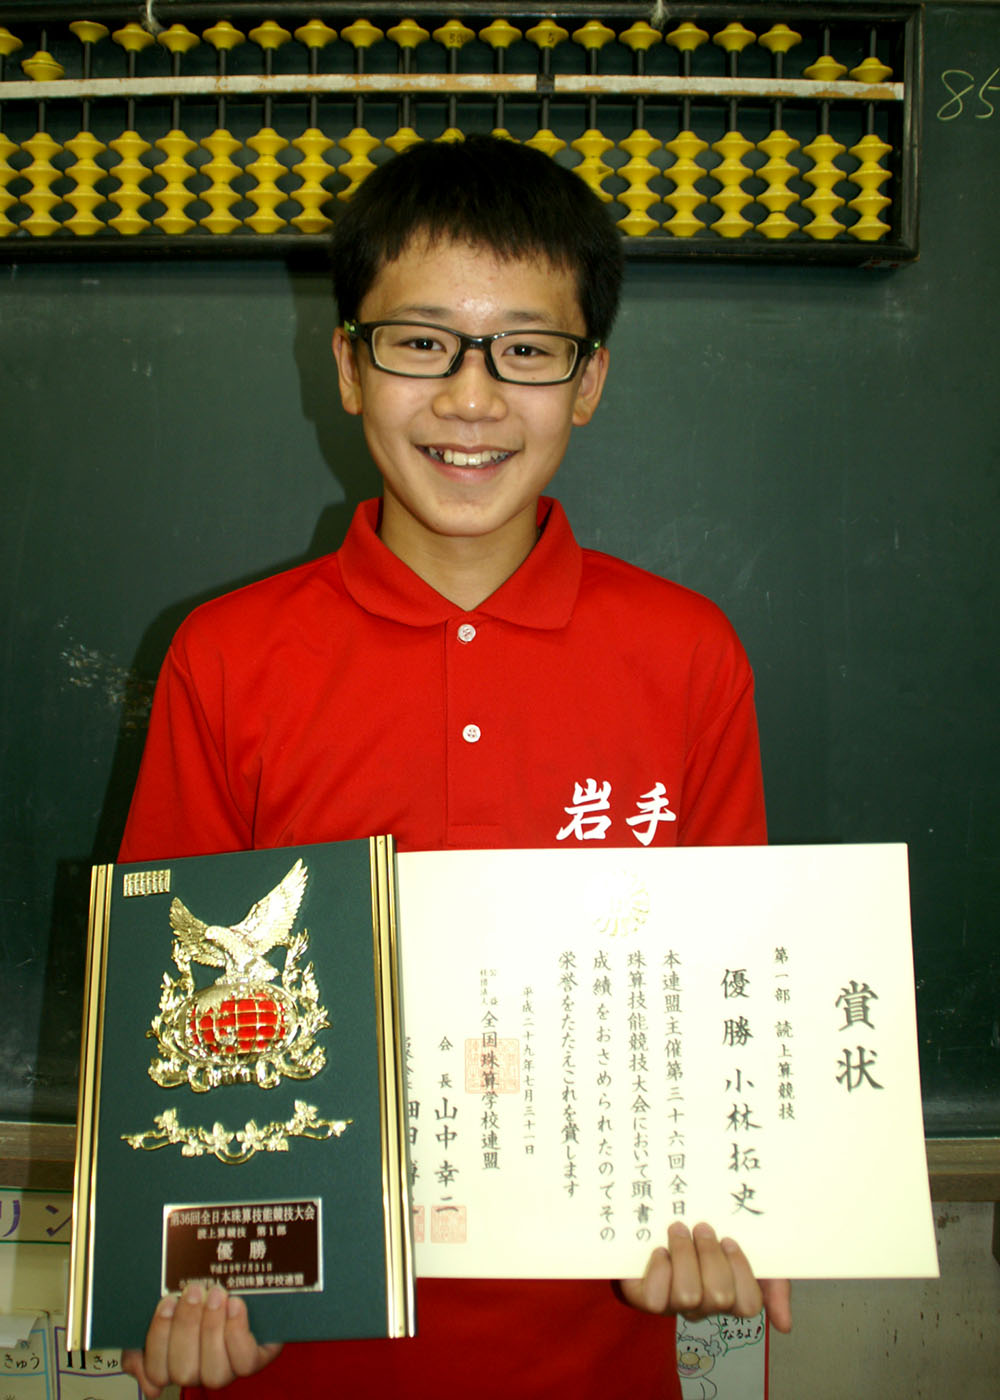 85
岩手
賞状
第一部 読上算競技
優勝 小林拓史
本連盟主催第三十六回全日
珠算技能競技大会において頭書の
成績をおさめられたのでその
栄誉をたたえこれを賞します
平成二十九年七月三十一日
公益社団法人 全国珠算学校連盟
会長 山中幸二
第36回全日本珠算技能競技大会
読上算競技 第1部
優勝
平成29年7月31日
公益社団法人 全国珠算学校連盟
リン
きゅう
11きゅう
ように
なるよ!